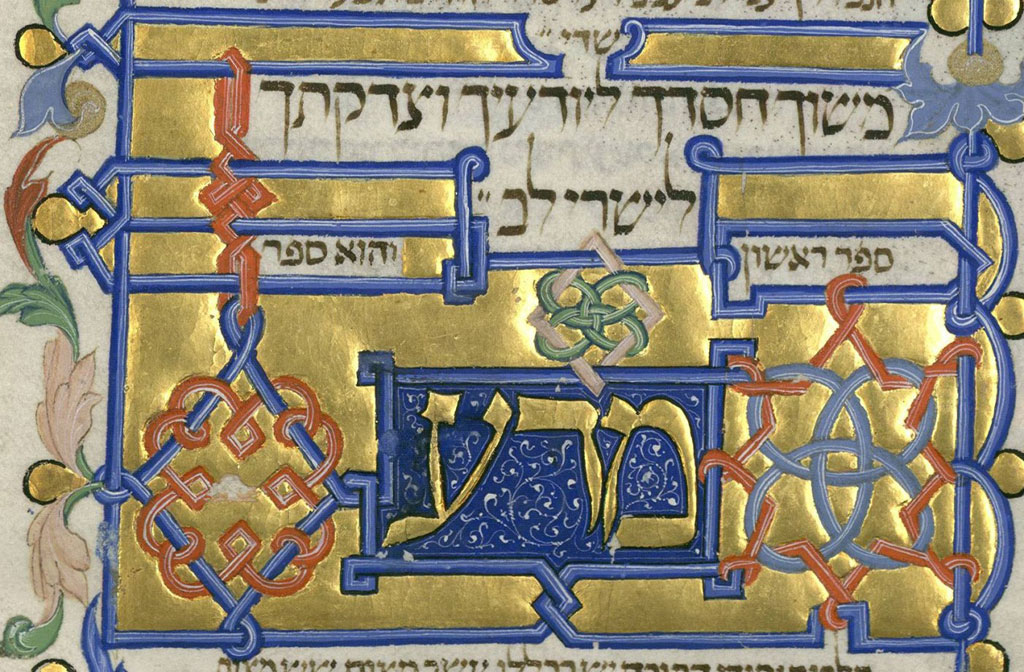 משוך חסדך ליודעיך וצדקתך
לישרי לב״
ספר ראשון והוא ספר
מדע